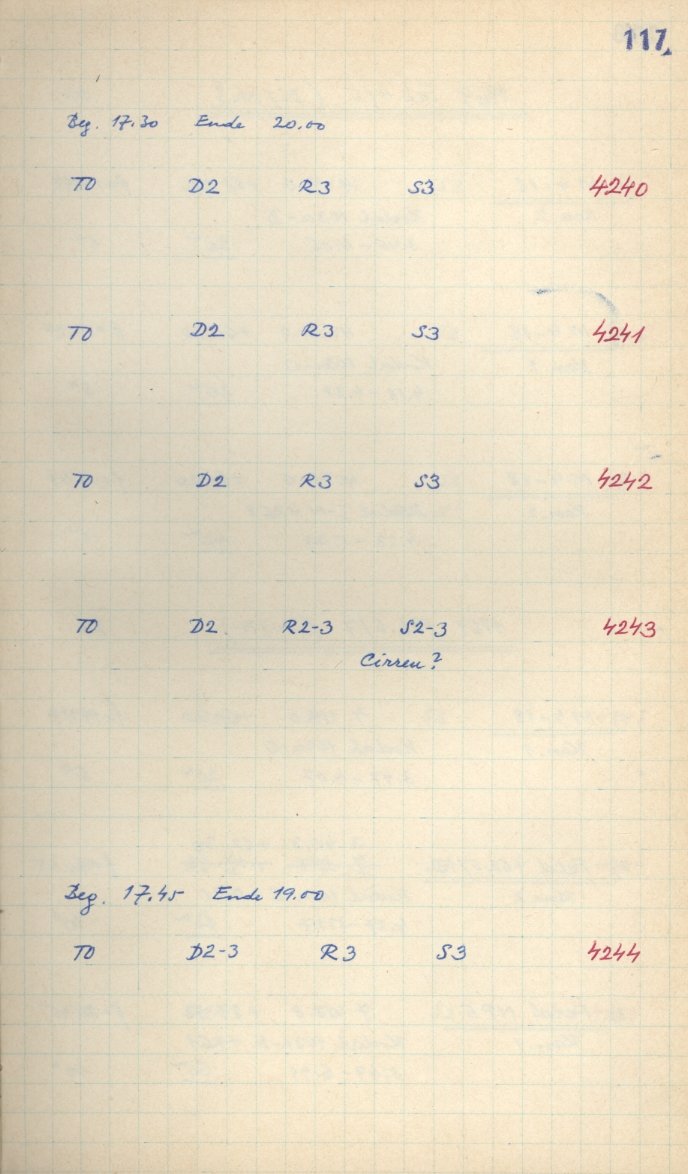 117
Beg. 17.30 Ende 20.00
T0 D2 R3 S3 4240
T0 D2 R3 S3 4241
T0 D2 R3 S3 4242
T0 D2 R2-3 S2-3 4243
Cirren?
Beg. 17.45 Ende 19.00
T0 D2-3 R3 S3 4244